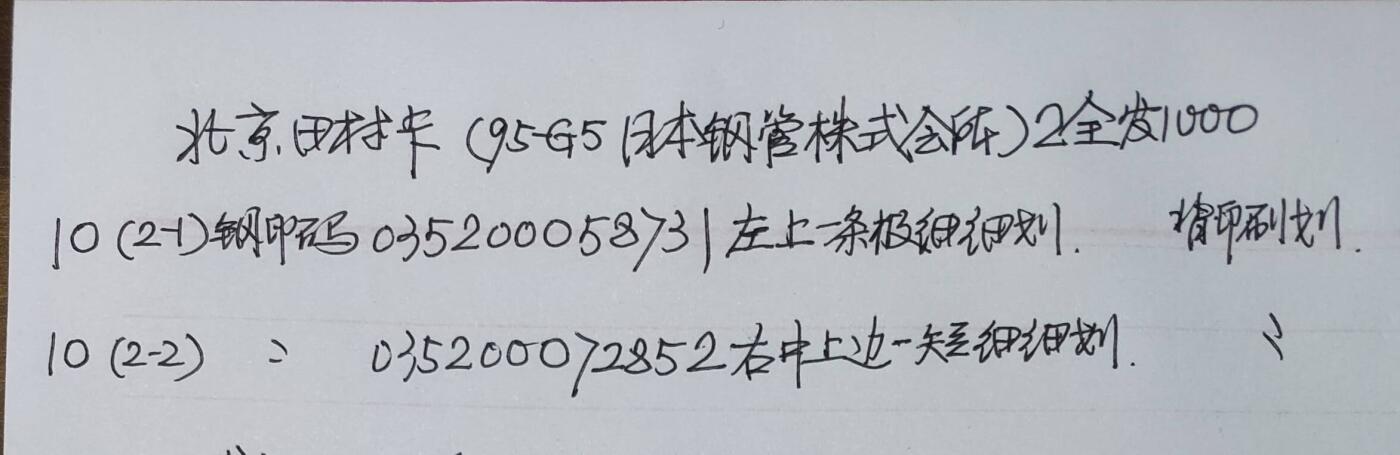 北京田村卡(95-G5日本钢管株式会所)2全发1000
10(2-1)钢印码035200058731左上一条极细细划. 背印刷划.
10(2-2) 〃 035200072852右中上边一短细细划. 〃